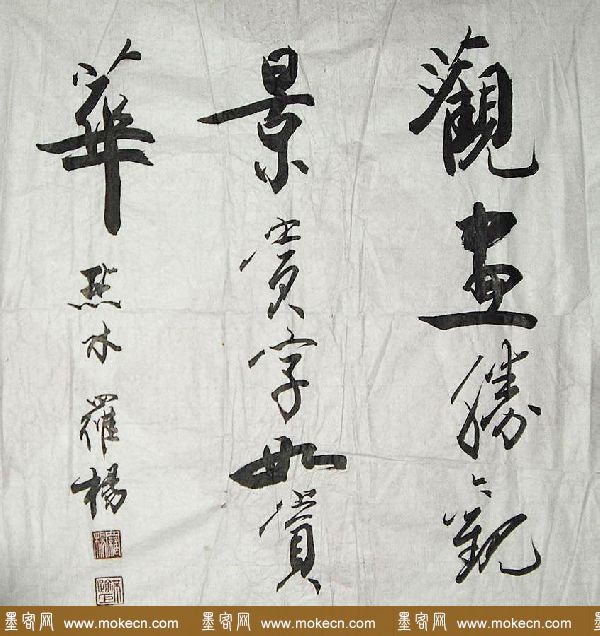 觀畫勝觀
景賞字如賞
華
燕水 羅楊
墨客网 www.mokecn.com 墨客网 www.mokecn.com 墨客网 www.mokecn.com